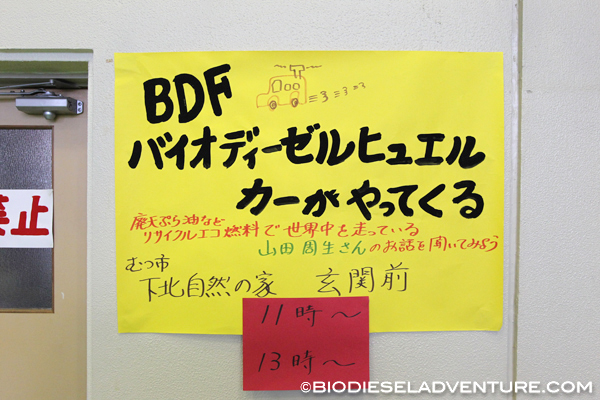 BDF
バイオディーゼルヒュエル
カーがやってくる
廃天ぷら油など
リサイクルエコ燃料で世界中を走っている
山田周生さんのお話を聞いてみよう
むつ市
下北自然の家 玄関前
11時〜
13時〜
禁止
©BIODIESELADVENTURE.COM